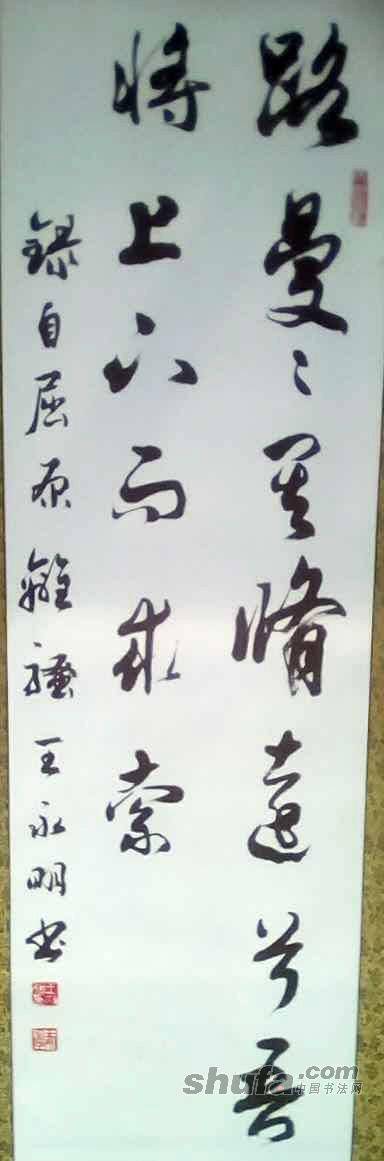 路曼〻其脩遠兮吾
將上下而求索
錄自屈原離騷王永明書
shufa.com
中国书法网